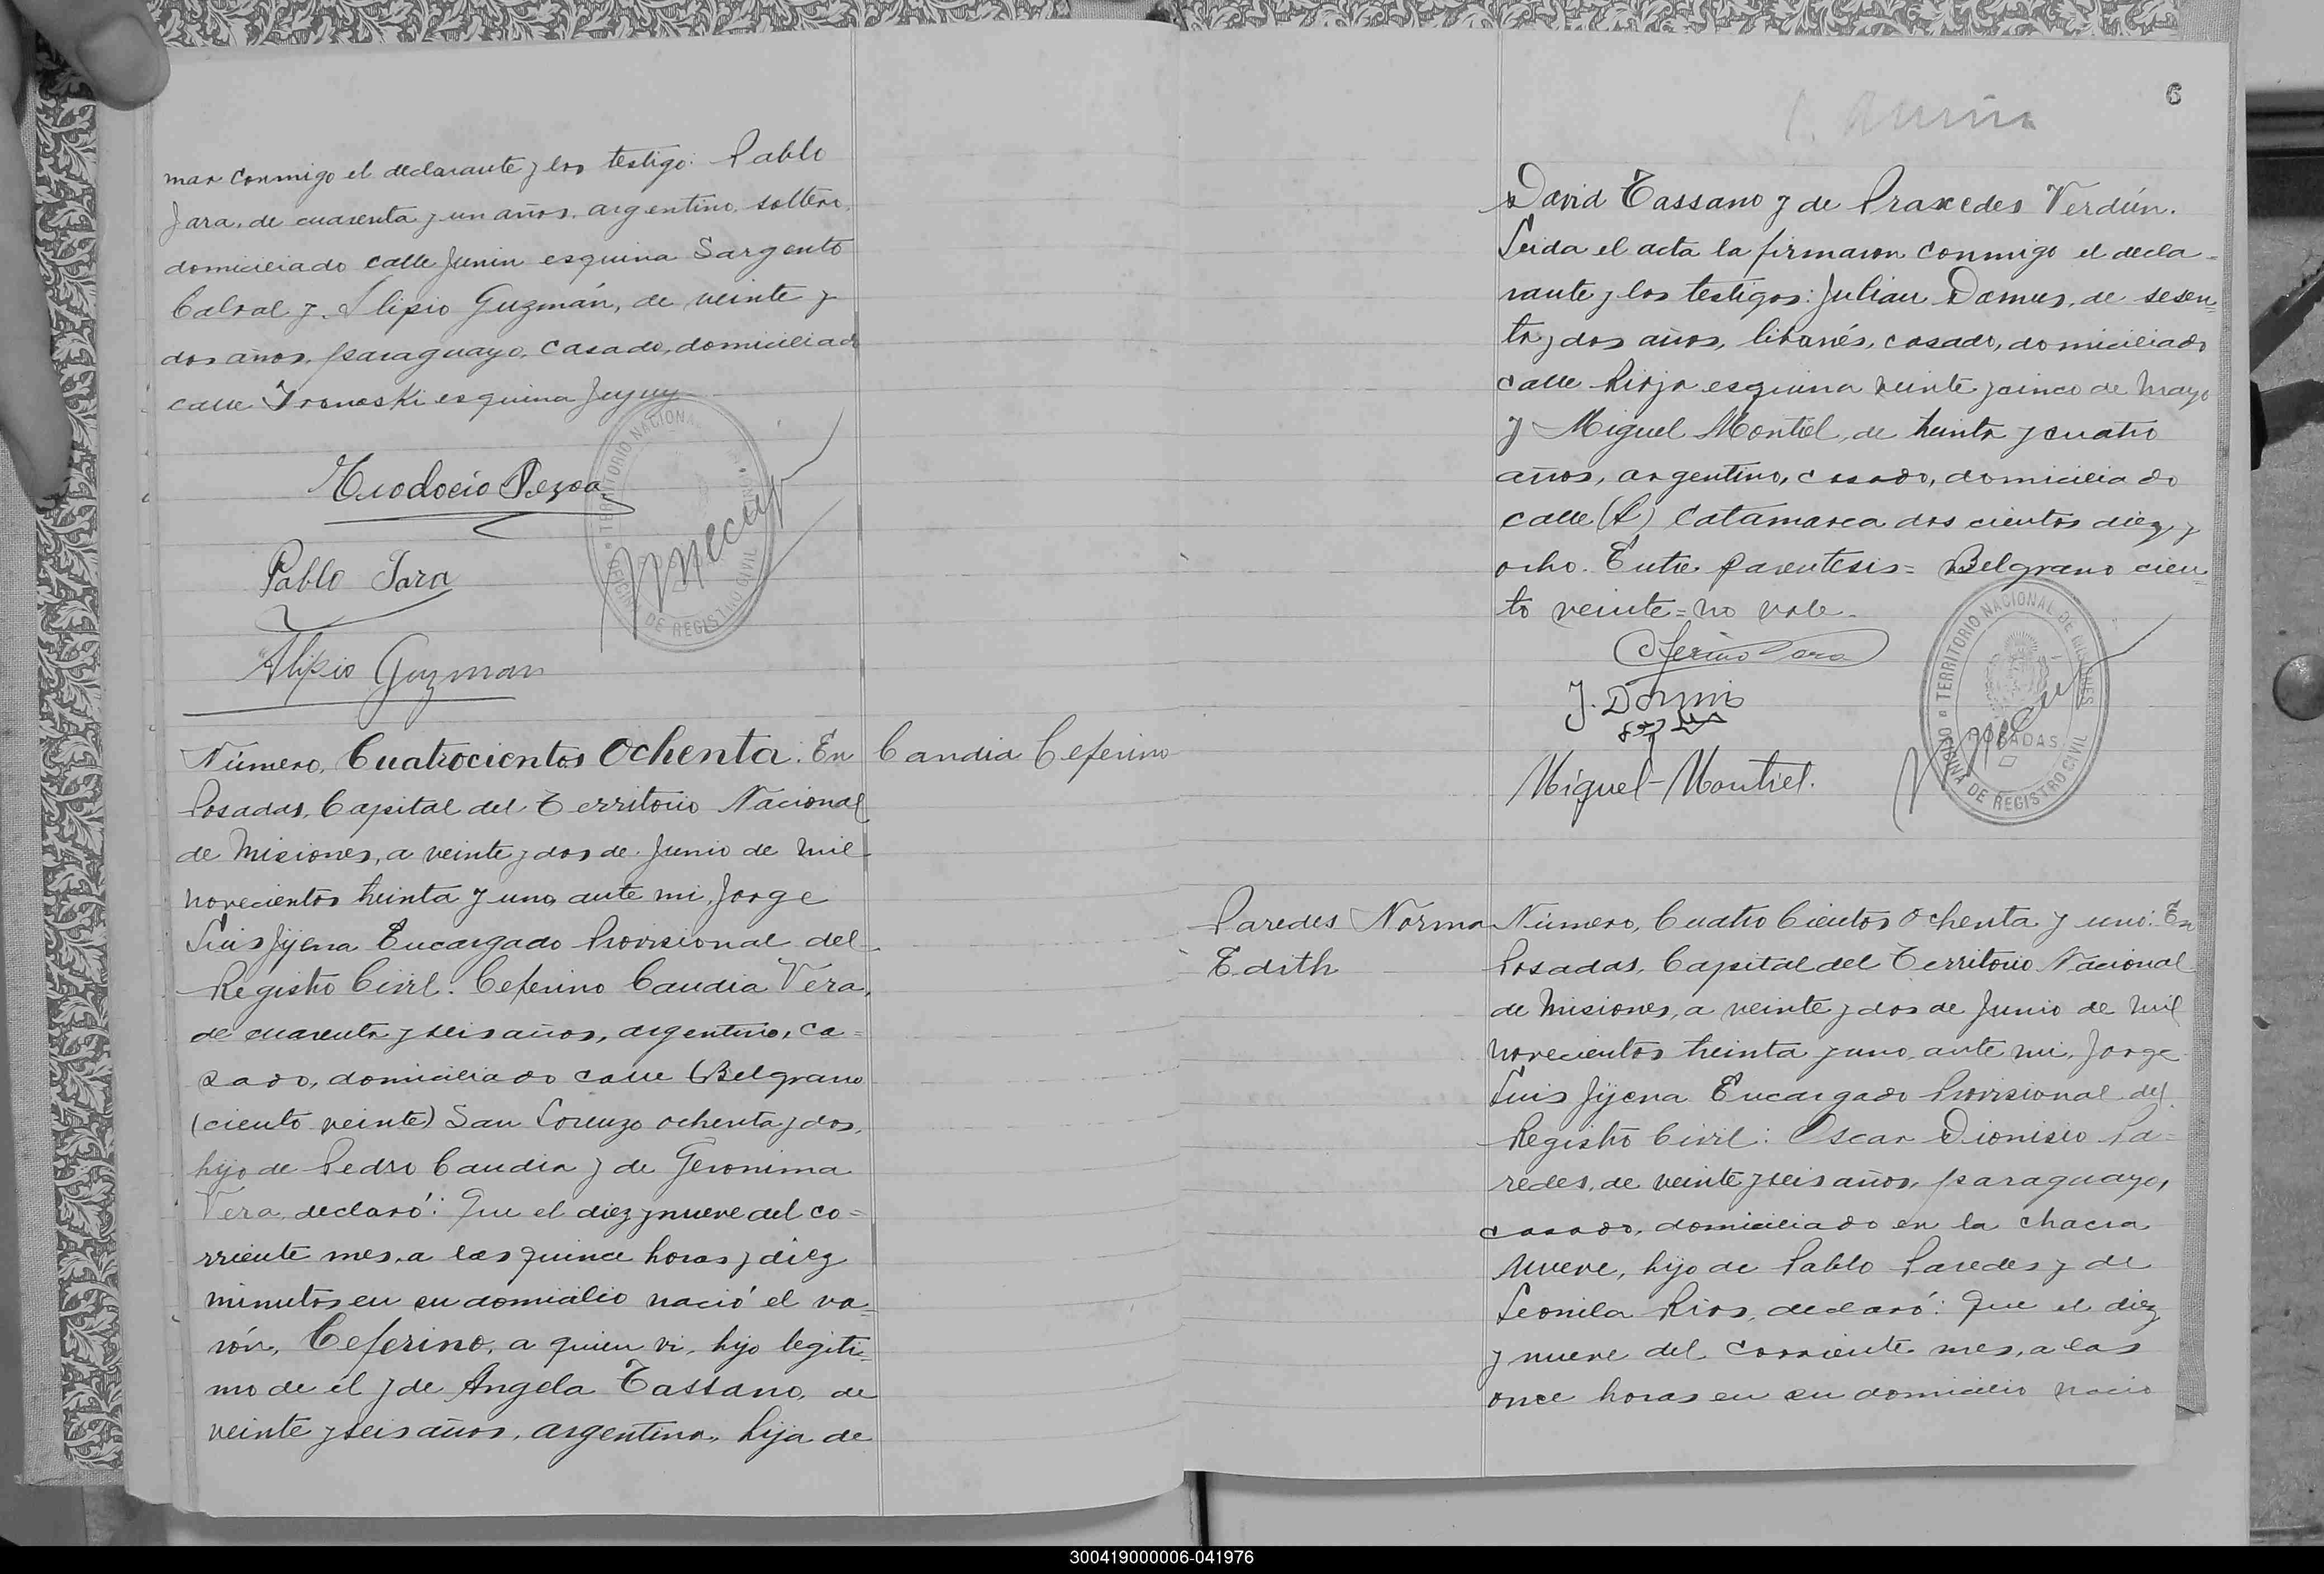 mar conmigo el declarante y los testigo: Pablo
Jara, de cuarenta y un años, argentino, soltero,
domiciliado calle Junin esquina Sargento
Cabral y Alipio Guzmán, de veinte y
dos años, paraguayo, casado, domiciliado
calle esquina Jujuy
Teodocio Pezoa
Pablo Jara
Alipio Guzman
TERRITORIO NACIONAL
OFICINA DE REGISTRO CIVIL
Número, Cuatrocientos Ochenta: En
Candia Ceferino
Posadas, Capital del Territorio Nacional
de Misiones, a veinte y dos de Junio de mil
novecientos treinta y uno, ante mi, Jorge
Luis Jijena Encargado Provisional del
Registro Civil: Ceferino Candia Vera,
de cuarenta y seis años, argentino, ca=
sado, domiciliado calle (Belgrano
(ciento veinte) San Lorenzo ochenta y dos,
hijo de Pedro Candia y de Geronima
Vera, declaró: Que el diez y nueve del co=
rriente mes, a las quince horas y diez
minutos en su domicilio nació el va=
rón, Ceferino, a quien vi, hijo legiti=
mo de él y de Angela Tassano, de
veinte y seis años, argentina, hija de
6
David Tassano y de Praxedes Verdún.
Leida el acta la firmaron conmigo el decla=
rante y los testigos: Julian Damus, de sesen=
ta y dos años, libanés, casado, domiciliado
calle Rioja esquina veinte y cinco de Mayo
y Miguel Montiel, de treinta y cuatro
años, argentino, casado, domiciliado
calle (L) Catamarca dos cientos diez y
ocho. Entre parentesis= Belgrano cien=
to veinte= no vale.
Miguel-Montiel.
TERRITORIO NACIONAL DE MISIONES
POSADAS
OFICINA DE REGISTRO CIVIL
Paredes Norma
Edith
Número, Cuatro Cientos Ochenta y uno: En
Posadas, Capital del Territorio Nacional
de Misiones, a veinte y dos de Junio de mil
novecientos treinta y uno, ante mi, Jorge
Luis Jijena Encargado Provisional del
Registro Civil: Oscar Dionisio Pa=
redes, de veinte y seis años, paraguayo,
casado, domiciliado en la chacra
nueve, hijo de Pablo Paredes y de
Leonila Rios, declaró: Que el diez
y nueve del corriente mes, a las
once horas en su domicilio nació
300419000006-041976